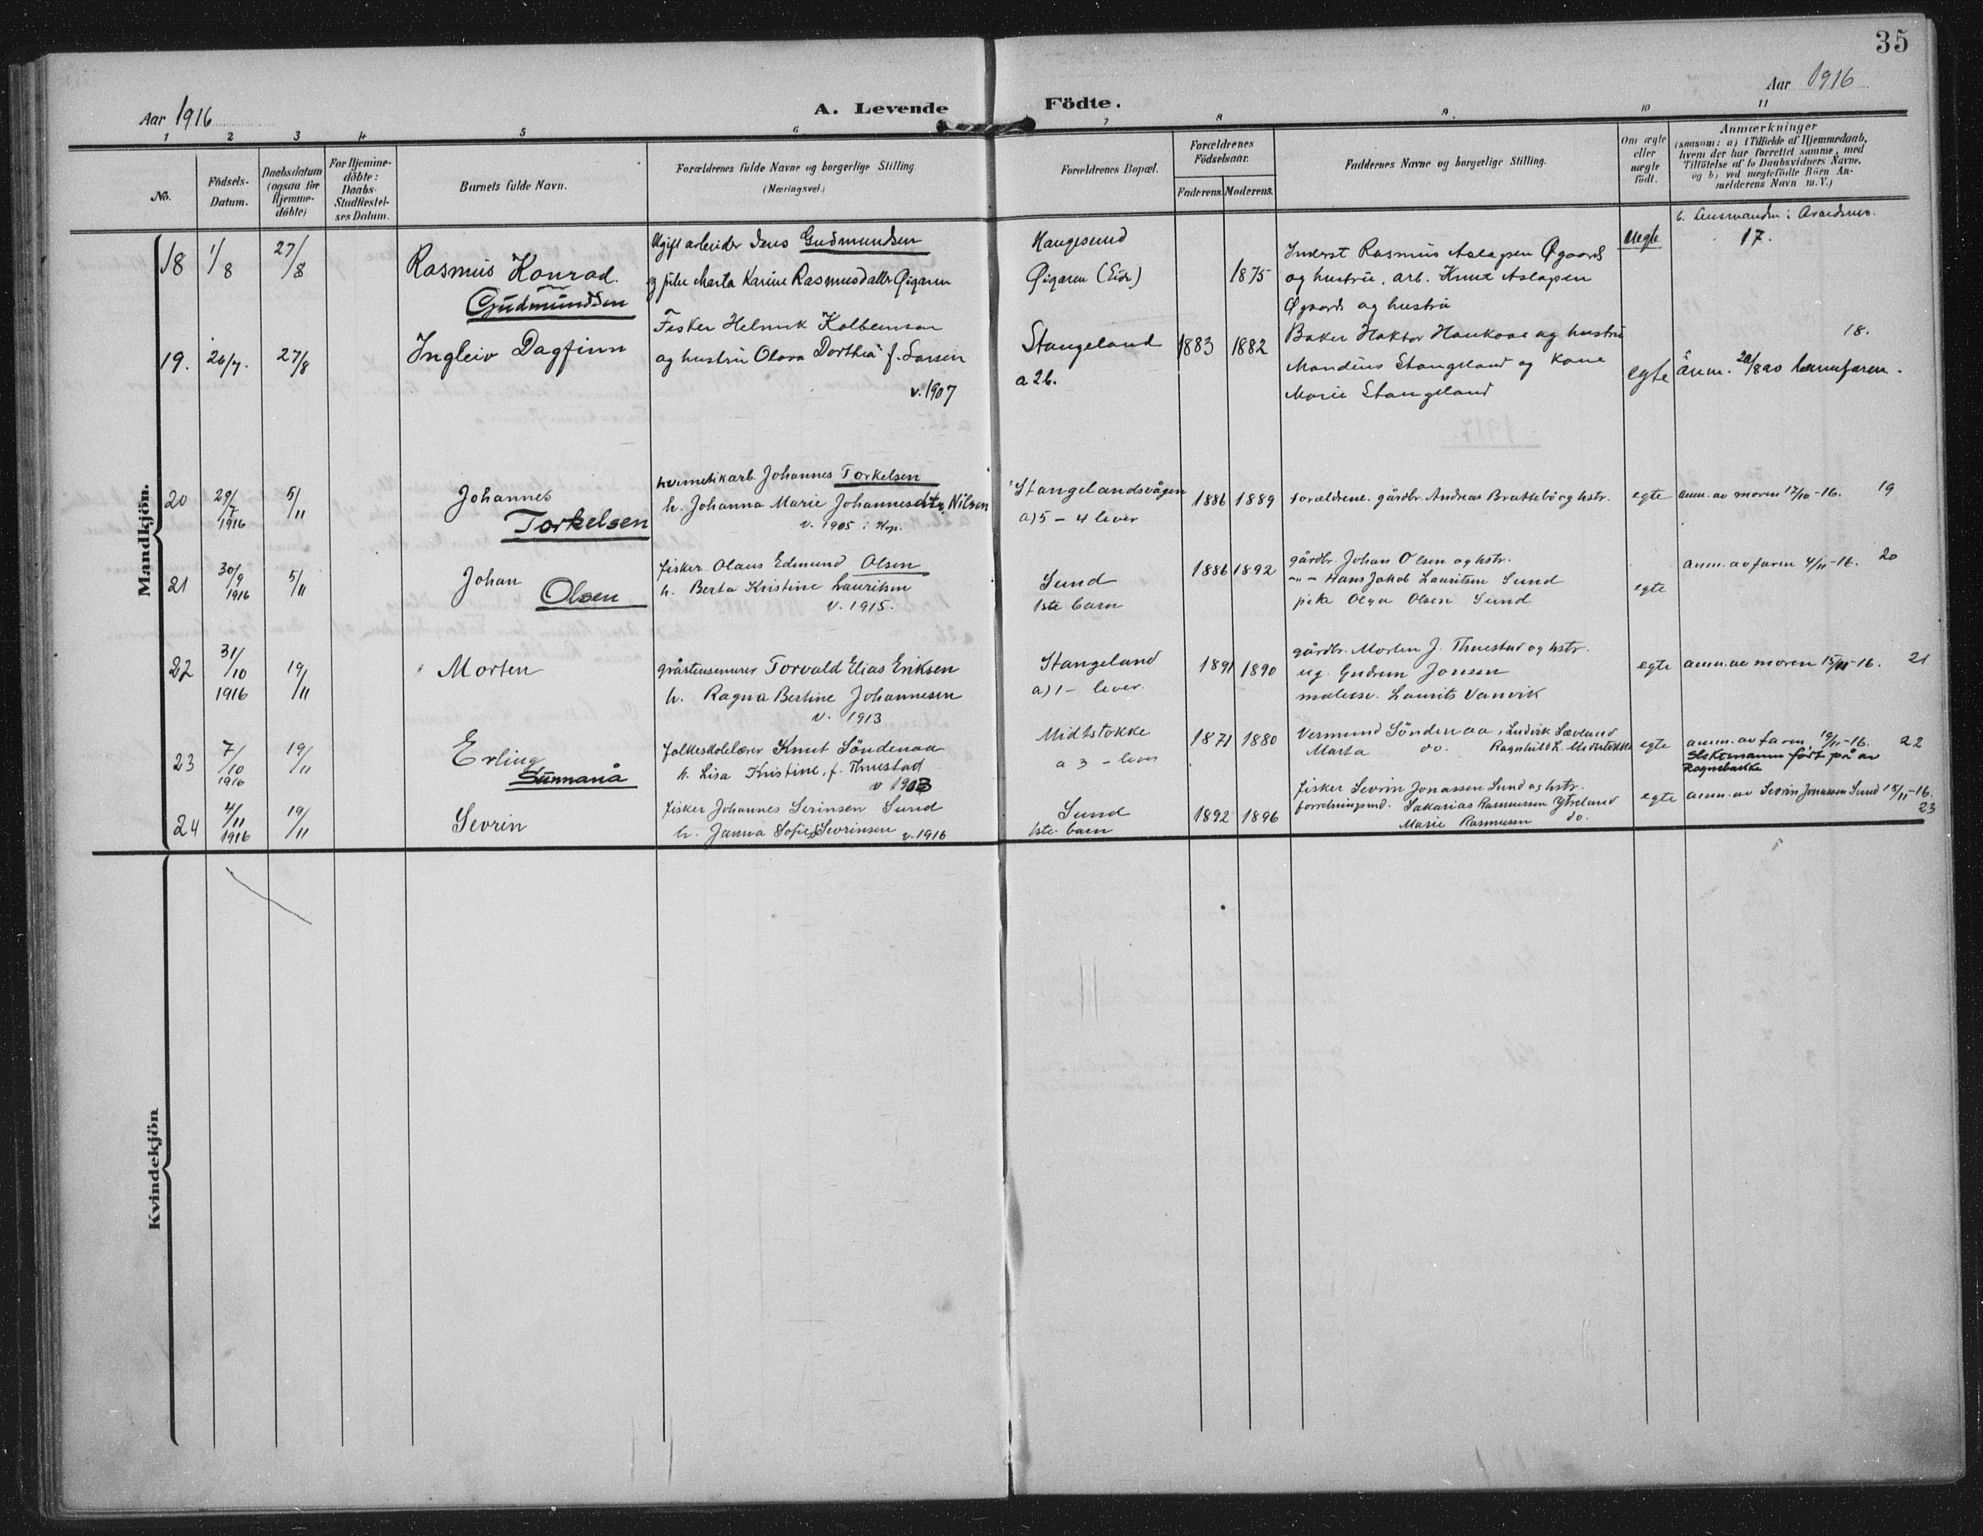 35
Aar 1916
A. Levende Födte.
Aar 1916
1 2 3 4 5 6 7 8 9. 10 11
No.
Födsels-
Datum.
Daabsdatum
(ogsaa for
Hjemme-
döbte)
For Hjemme-
döbte:
Daabs-
Stadfæstel-
ses Datum.
Barnets fulde Navn.
Forældrenes fulde Navne og borgerlige Stilling
(Næringsvei.)
Forældrenes Bopæl.
Forældrenes
Födselsaar.
Faderens. Moderens.
Faddernes Navne og borgerlige Stilling.
Om ægte
eller
uægte
födt.
Anmærkninger
(saasom: a) i Tilfælde af Hjemmedaab,
hvem der har forrettet samme, med
Tilföielse af to Daabsvidners Navne,
og b) ved uegtefödte Börn An-
melderens Navn m. V.)
Mandkjön.
18 1/8 27/8
Rasmus Konrad
Gudmundsen
Ugift arbeider Jens Gudmundsen
og pike Marta Karine Rasmusdatter Øigaren
Haugesund
Øigaren (Eide)
1875
Inderst Rasmus Aslaksen Øgaard
og hustru, arb. Knut Aslaksen
Øgaard og hustru
Uegte
17.
19. 26/7. 27/8
Ingleiv Dagfinn
Fisker Helmik Kolbensen
og hustru Olava Dorthea f. Larsen
v. 1907
Stangeland
a 2b.
1883 1882
Baker Haktor Haukaas og hustru
Mandius Stangeland og kone
Marie Stangeland
egte
18.
20 29/7 1916 5/11
Johannes
Torkelsen
hermetikarb. Johannes Torkelsen
h. Johanna Marie Johannesdtr. Nilsen
v. 1905
Stangelandsvågen
a) 5 - 4 lever
1886 1889
forældrene. gårdbr. Andreas Brattebö og hstr.
egte
anm. av moren 17/10-16. 19
21 30/9 1916 5/11
Johan
Olsen
fisker Olaus Edmund Olsen
h. Berta Kristine Lauritsen
v. 1915.
Sund
1ste barn
1886 1892
gårdbr. Johan Olsen og hstr.
-"- Hans Jakob Lauritsen Sund
pike Olga Olsen Sund
egte
anm. av faren 4/11-16. 20
22 31/10 1916 19/11
Morten
gråstensmurer Torvald Elias Eriksen
h. Ragna Bertine Johannesen
v. 1913
Stangeland
a) 1 - lever.
1891 1890
gårdbr. Morten J. Thuestad og hstr.
ug. Gudrun Jonsen
malersv. Laurits Vanvik
egte
anm. av moren 15/11-16. 21
23 7/10 1916 19/11
Erling
Sunnanå
folkeskolelærer Knut Söndenaa
h. Lisa Kristine, f. Thuestad
v 1903
Midtstokke
a 3 - lever
1871 1880
Vermund Söndenaa, Ludvik Sævland
Marta do. Ragnhild K. Midtstokke
egte
anm. av faren 19/11-16. 22
Slektsnamn fört på av
24 4/11 1916 19/11
Sevrin
fisker Johannes Serinsen Sund
h. Janna Sofie Sevrinsen v. 1916
Sund
1ste barn
1892 1896
fisker Sevrin Jonassen Sund og hstr.
forretningsmd. Sakarias Rasmussen Ytreland
Marie Rasmussen do.
egte
anm. av Sevrin Jonassen Sund 18/11-16.
23
Kvindekjön